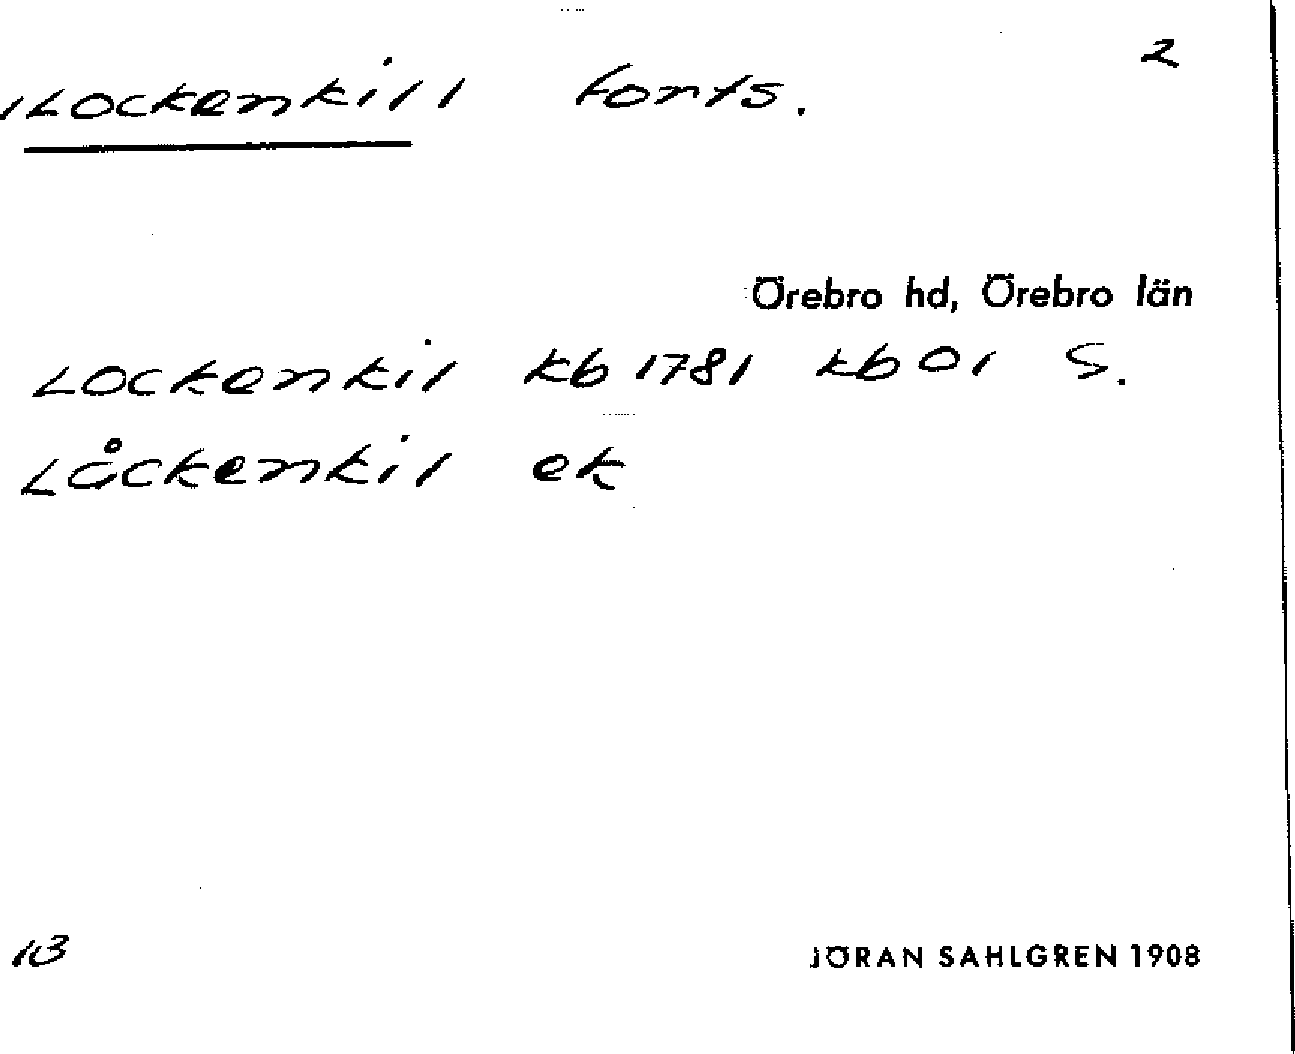 2
Lockenkill forts.
Örebro hd, Örebro län
Lockenkil kb 1781 kb 01 S.
Låckenkil ek
103
JÖRAN SAHLGREN 1908